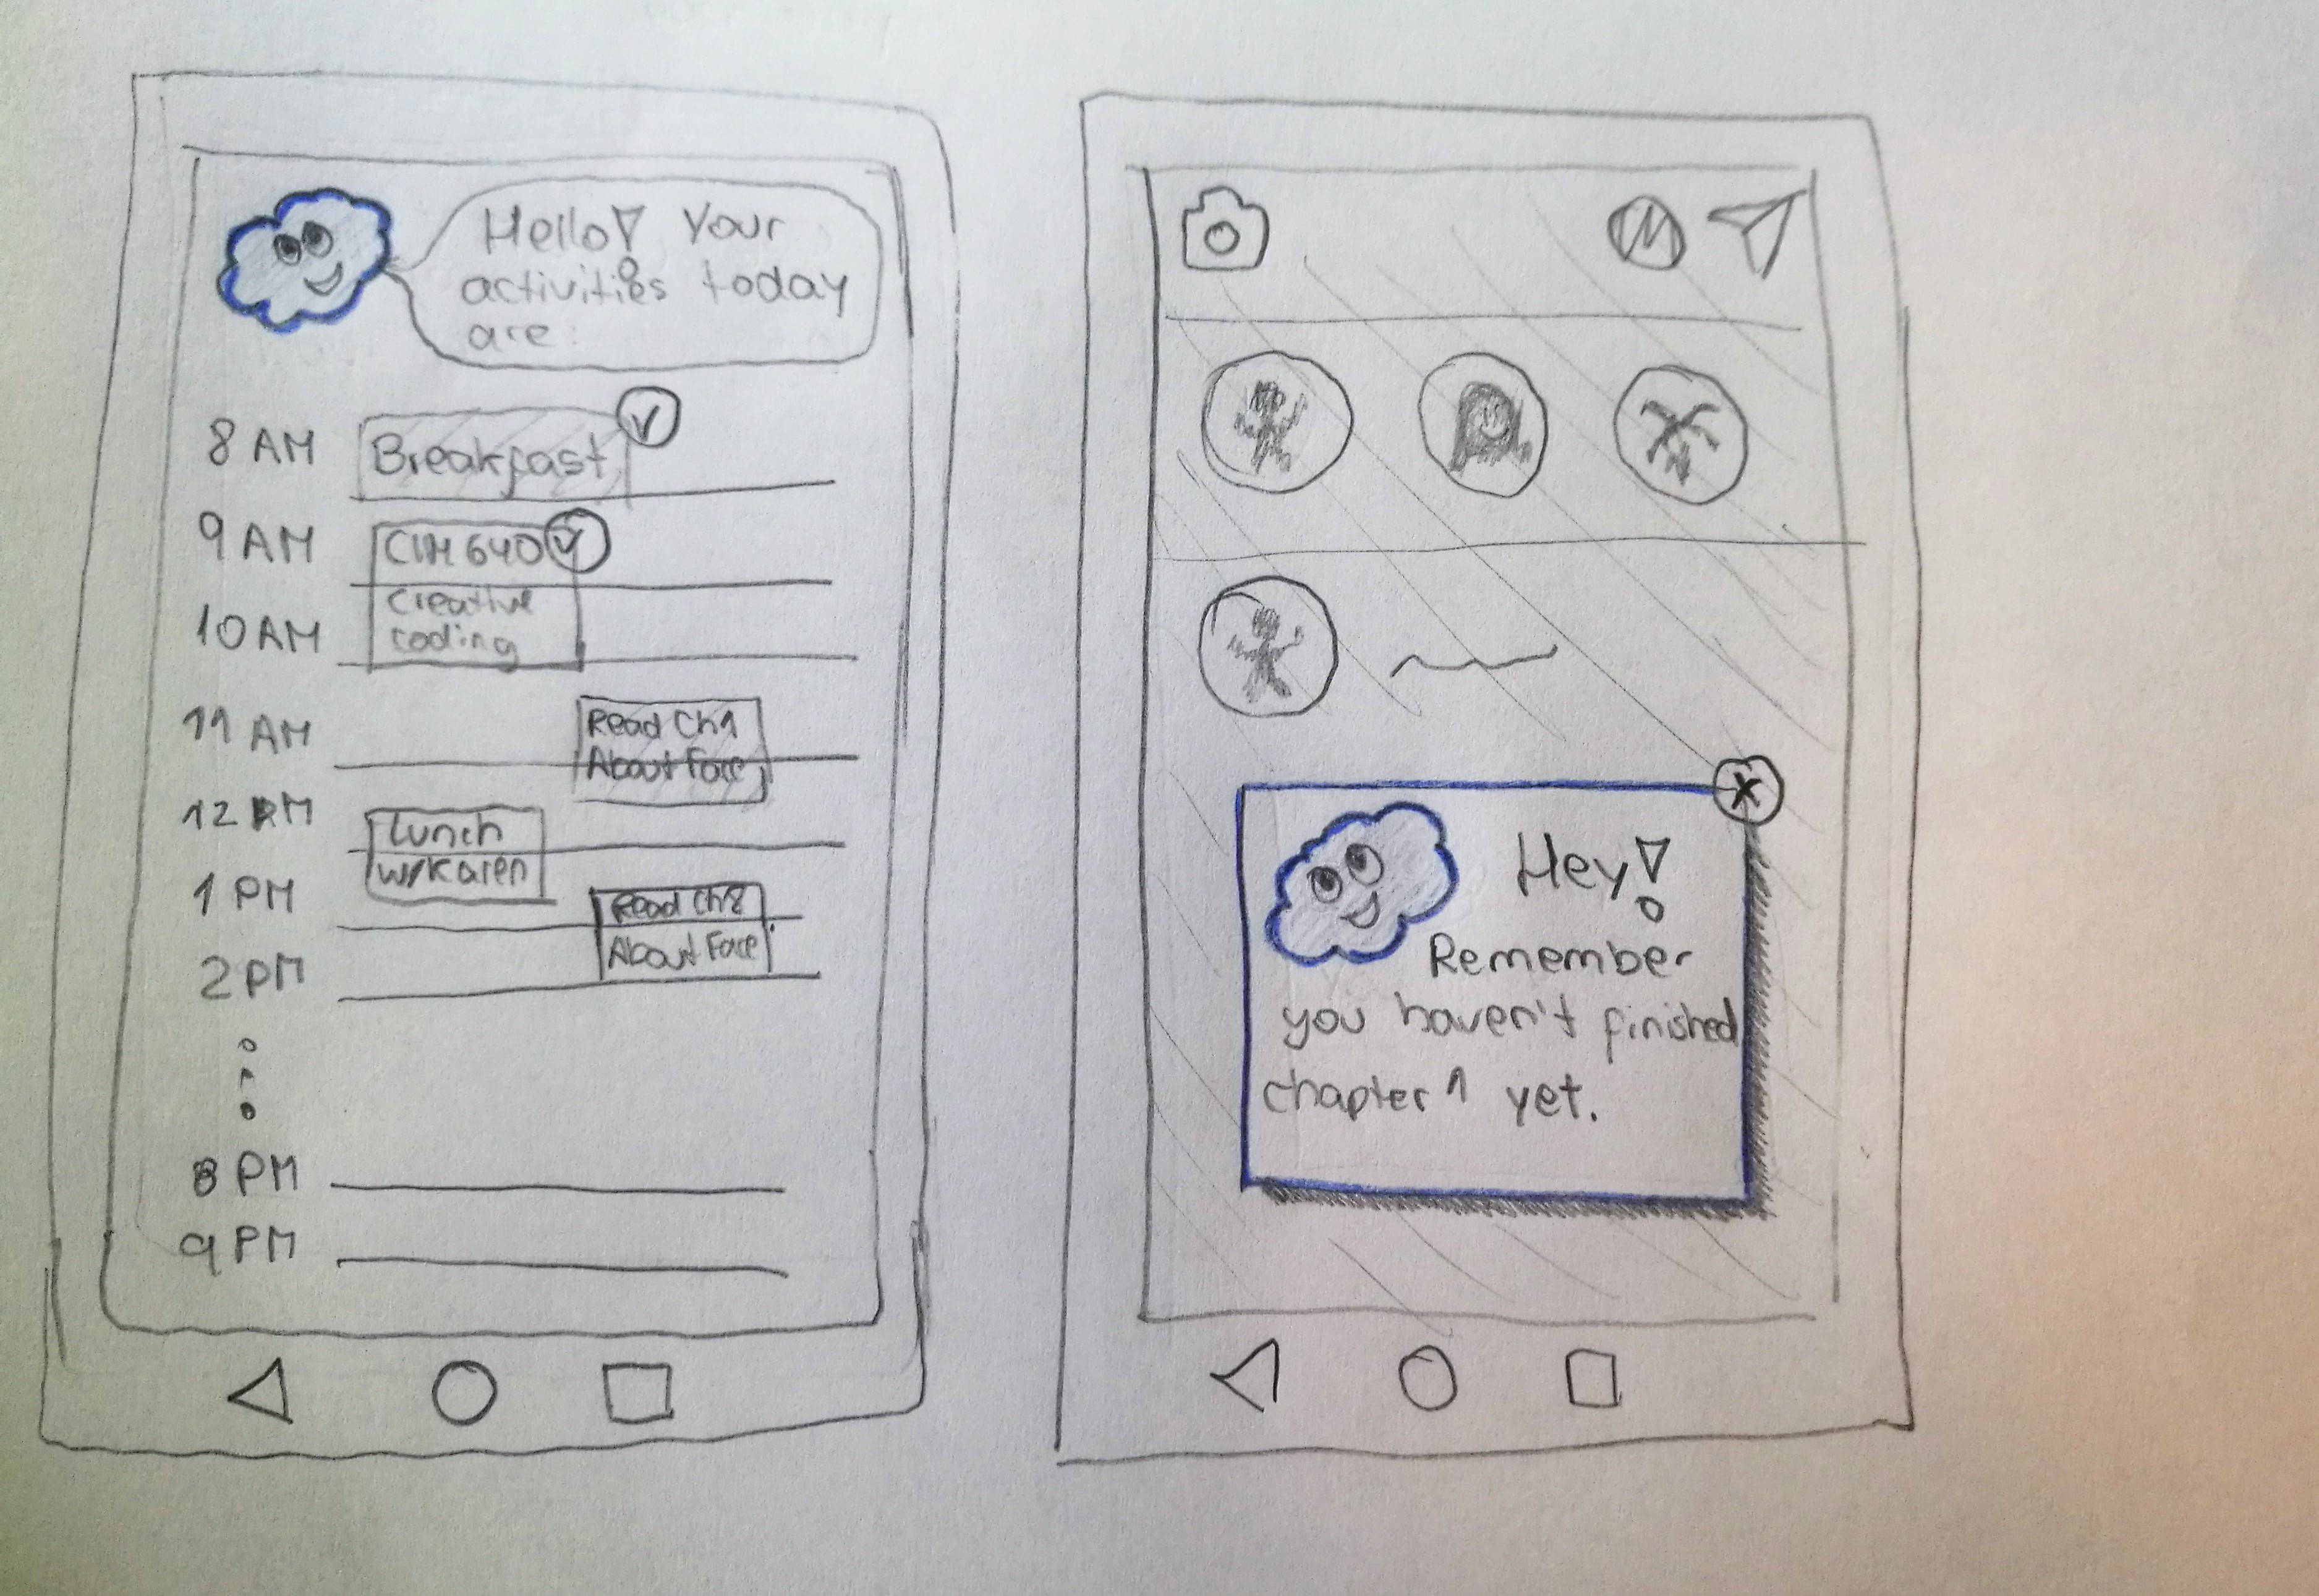 Hello! Your
activities today
are:
8 AM Breakfast
9 AM CIM 640
Creative
10 AM coding
11 AM Read Ch1
About Face
12 PM Lunch
w/Karen
1 PM Read Ch2
About Face
2 PM
8 PM
9 PM
Hey!
Remember
you haven't finished
chapter 1 yet.